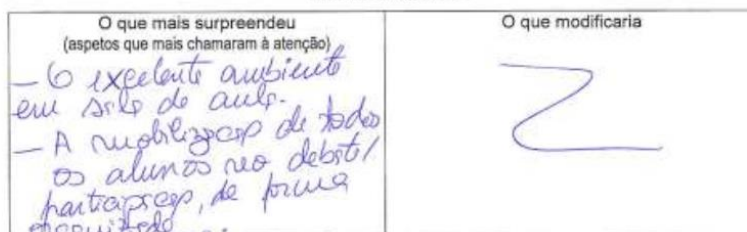 O que mais surpreendeu
(aspetos que mais chamaram à atenção)
— O excelente ambiente
em sala de aula.
— A mobilização de todos
os alunos no debate/
participação, de forma
organizada
O que modificaria